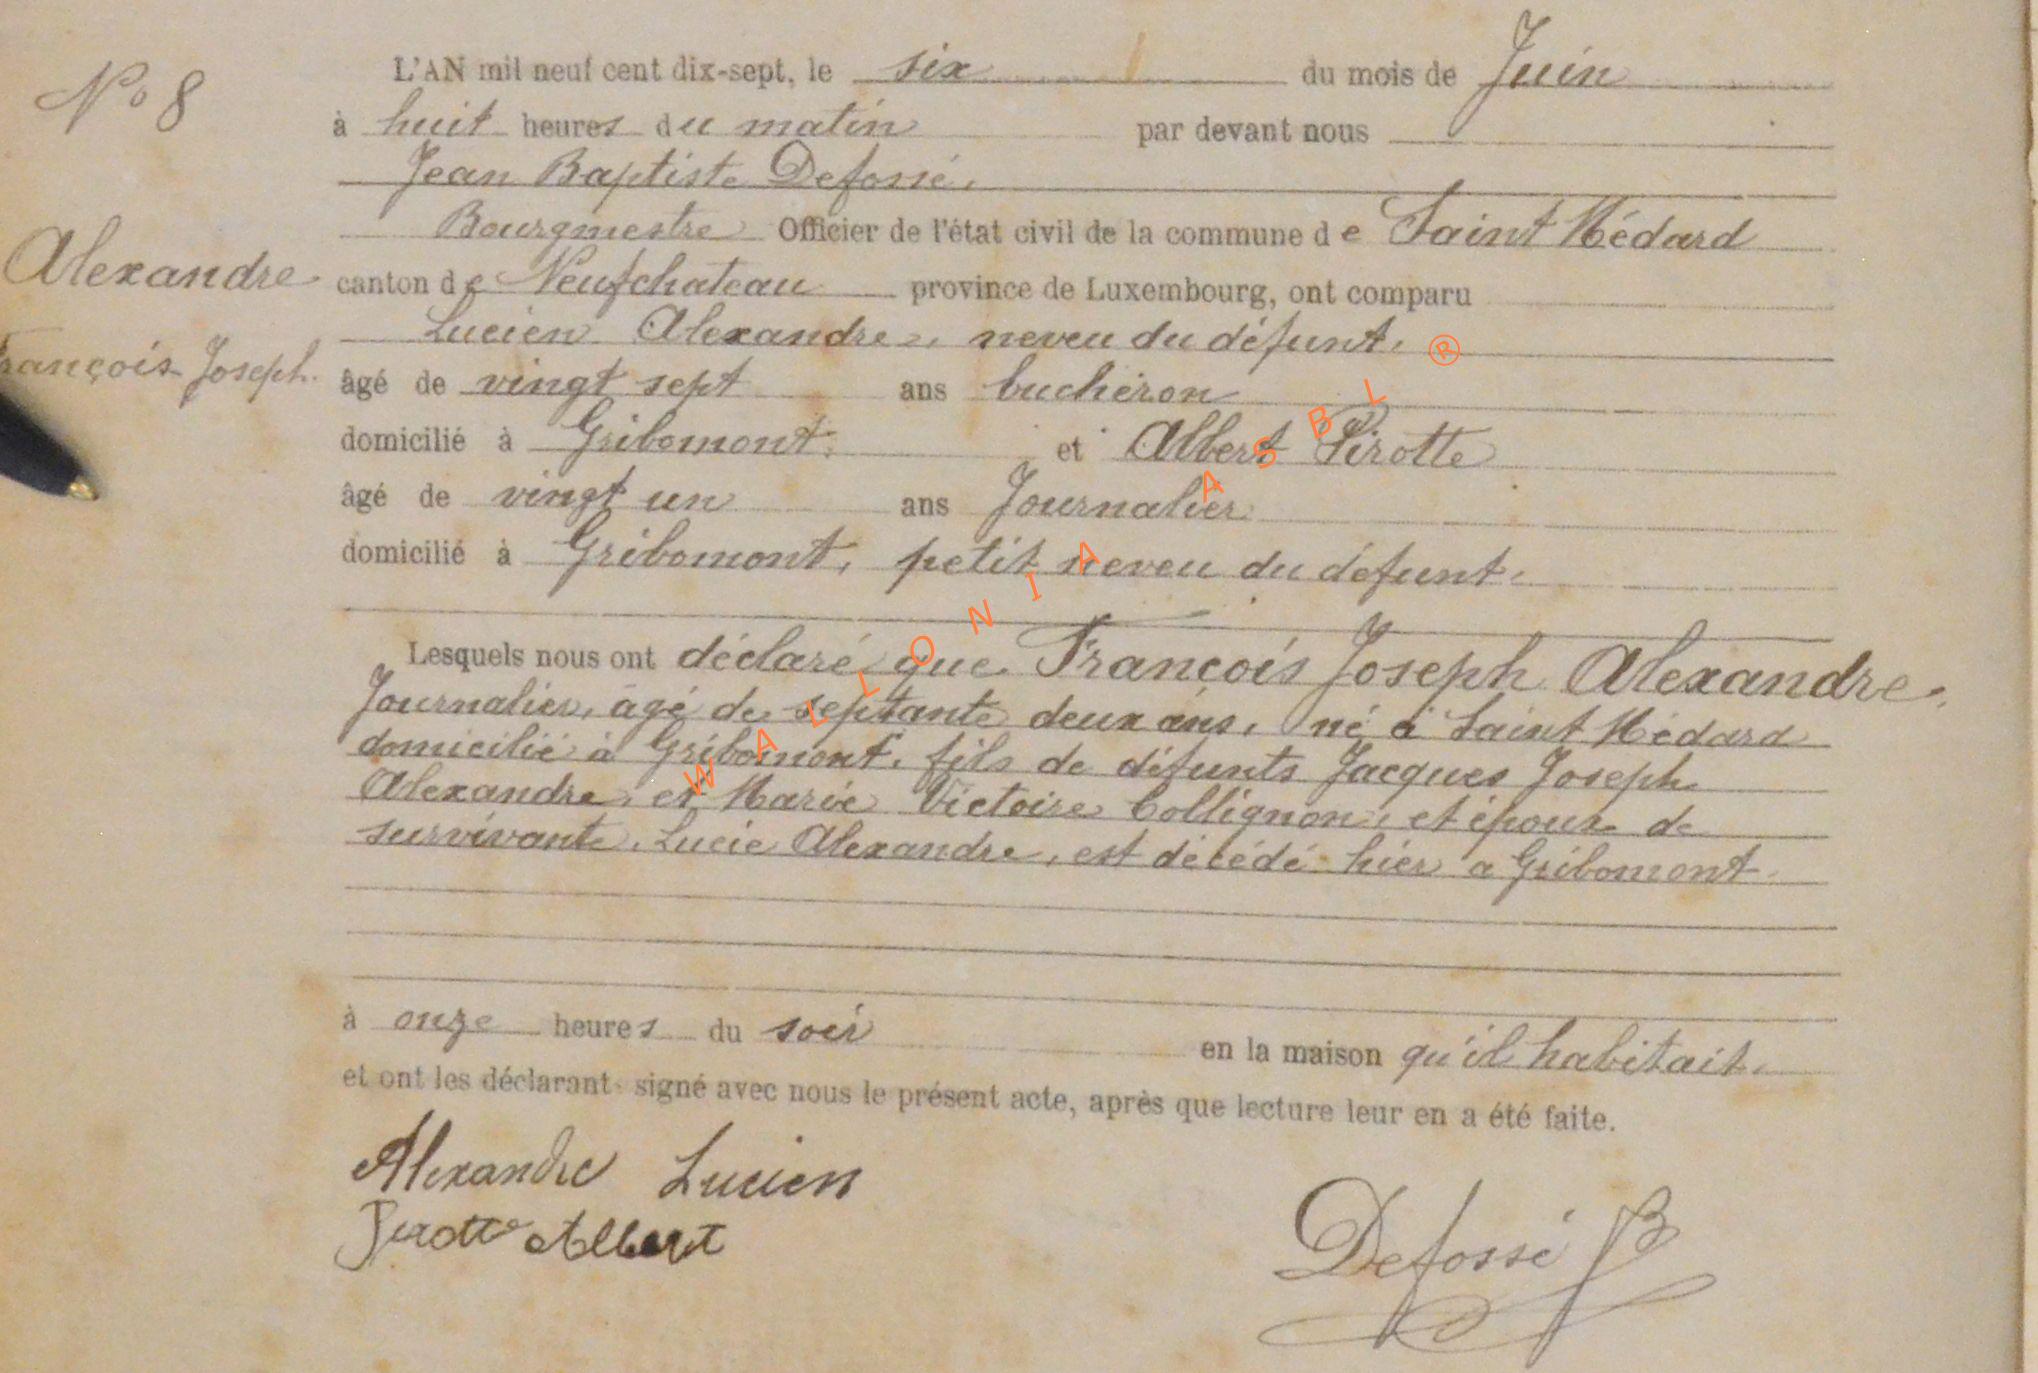 N° 8
Alexandre
François Joseph.
L'AN mil neuf cent dix-sept, le six du mois de Juin
à huit heures du matin par devant nous
Jean Baptiste Defossé,
Bourgmestre Officier de l'état civil de la commune de Saint Médard
canton de Neufchateau province de Luxembourg, ont comparu
Lucien Alexandre, neveu du défunt,
âgé de vingt sept ans bucheron
domicilié à Gribomont, et Albert Pirotte
âgé de vingt un ans Journalier
domicilié à Gribomont, petit neveu du défunt,
Lesquels nous ont déclaré que François Joseph Alexandre,
Journalier, âgé de septante deux ans, né à Saint Médard
domicilié à Gribomont, fils de défunts Jacques Joseph
Alexandre, et Marie Victoire Collignon, et époux de
survivante, Lucie Alexandre, est décédé hier a Gribomont
à onze heures du soir en la maison qu'il habitait,
et ont les déclarant signé avec nous le présent acte, après que lecture leur en a été faite.
Alexandre Lucien
Pirotte Albert
Defossé JB
WALLONIA ASBL ®